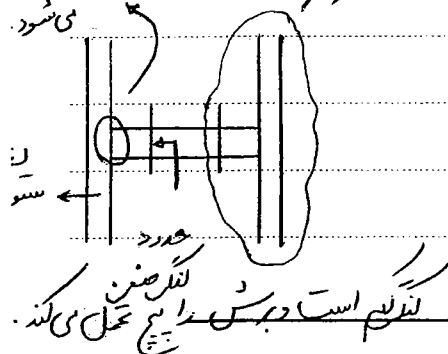 می‌شود.
ستو
حدود
لنگر صفر
لنگر کم است و برش را پیچ تحمل می‌کند.